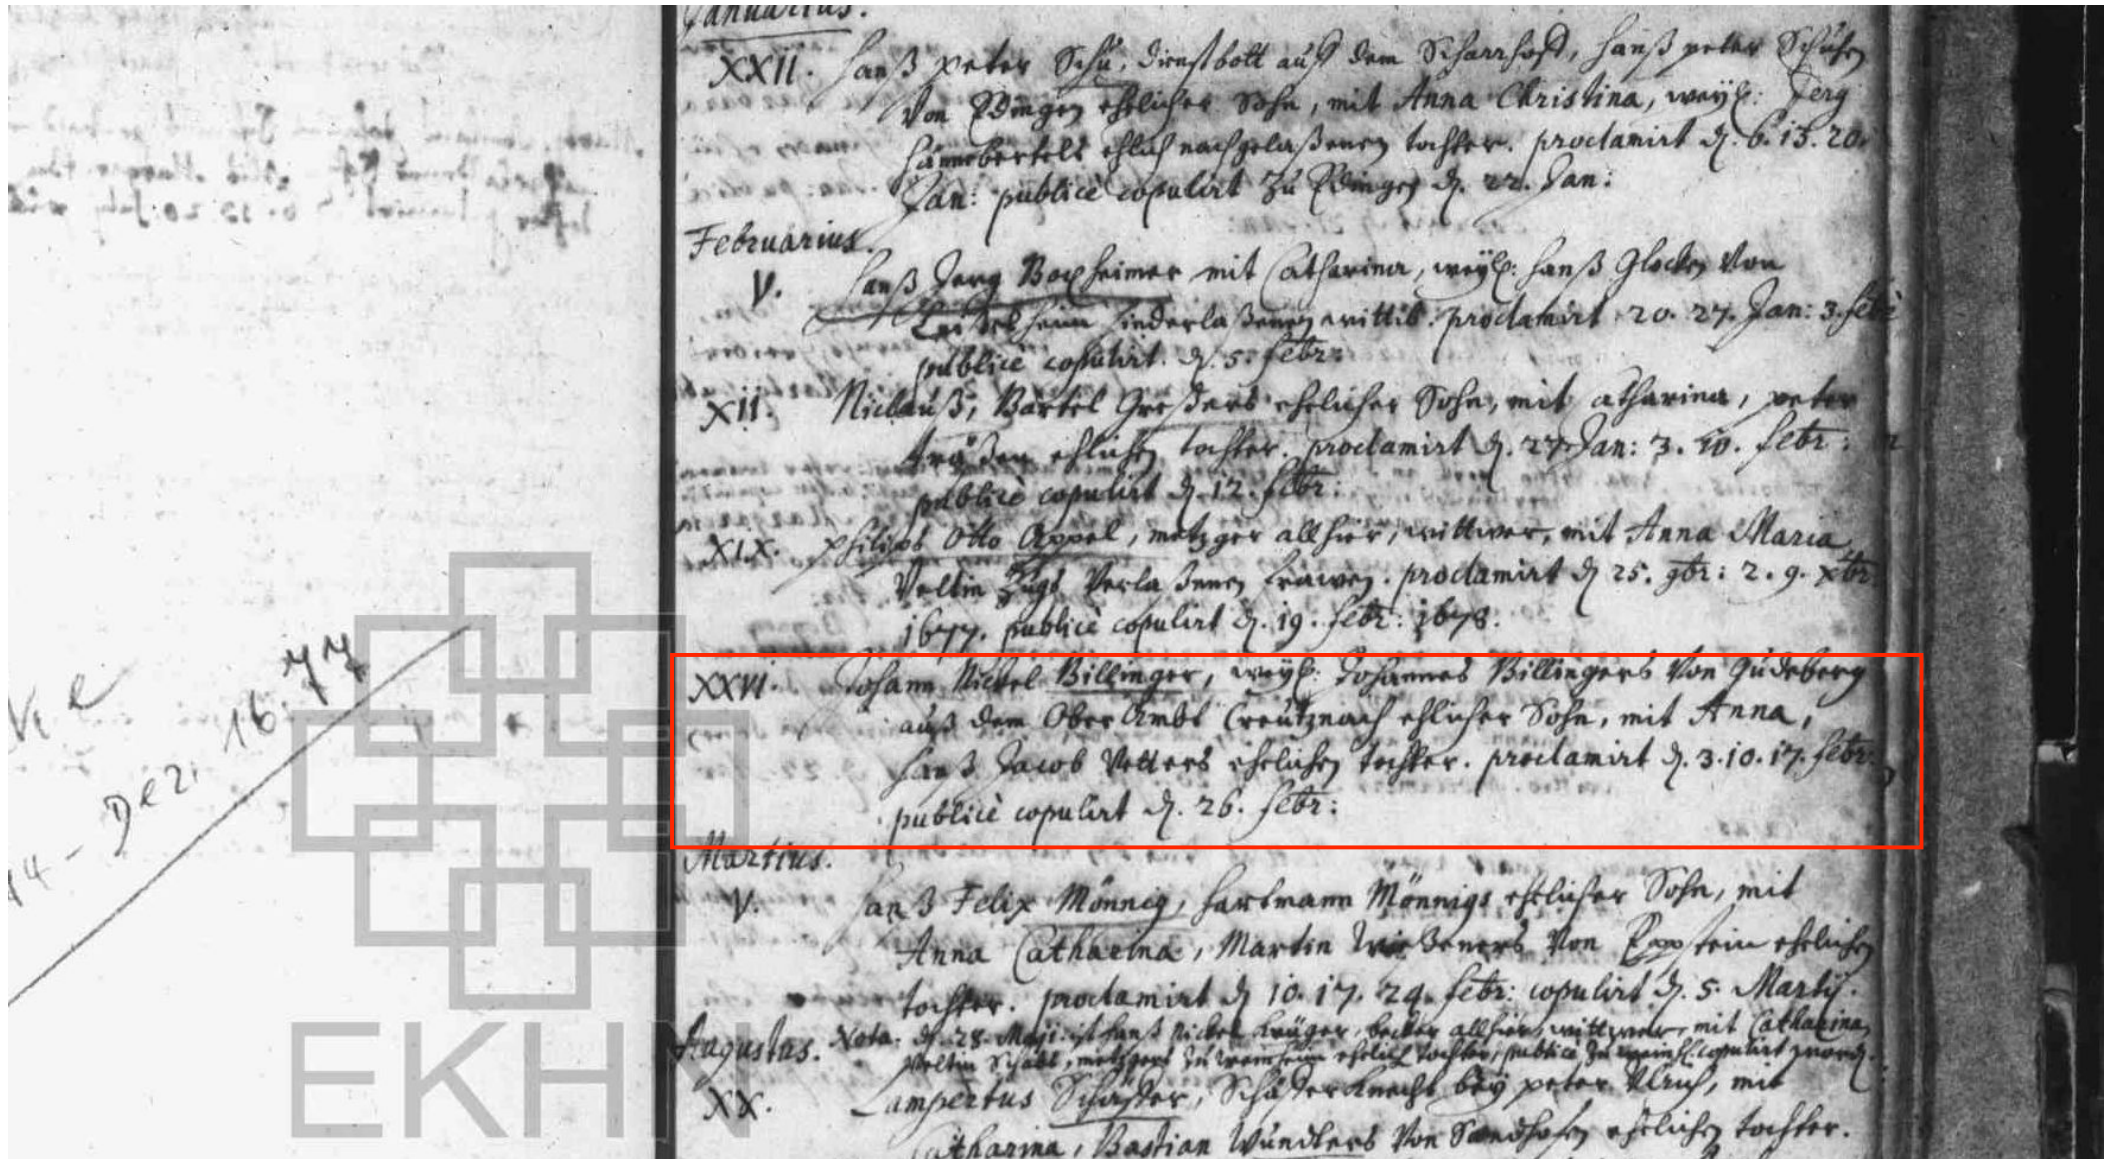 Januarius.
XXII. Hanß Peter Schü, dienstbott auß dem Scharrhoff, Hanß peter Schühen
Von Edingen ehelicher Sohn, mit Anna Christina, weyl: Jerg
Hännebertels ehlich nachgelaßenen tochter. proclamirt d. 6. 13. 20.
Jan: publicè copulirt zu Edingen d. 22. Jan:
Februarius.
V. Hanß Jerg Boxheimer mit Catharina, weyl: Hanß Glocken Von
hinderlaßenen wittib. proclamirt 20. 27. Jan: 3. febr
publicè copulirt. d. 5. febr:
XII. Niclauß, Bartel ehelicher Sohn, mit Catharina, peter
ehlichen tochter. proclamirt d. 27 Jan: 3. 10. febr:
publicè copulirt d. 12. febr:
XIX. Philipß Otto Appel, metzger allhier, wittwer, mit Anna Maria,
Veltin Zugs Verlaßenen frawen. proclamirt d 25. 9br: 2. 9. xbr
1677. publicè copulirt d. 19. febr: 1678.
XXVI. Johann Nickel Billinger, weyl: Johannes Billingers Von Gudeberg
auß dem Ober Ambt Creutznach ehlicher Sohn, mit Anna,
Hanß Jacob Vetters ehelichen tochter. proclamirt d. 3. 10. 17. febr:
publicè copulirt d. 26. febr:
Martius.
V. Hanß Felix Mönnig, Hartmann Mönnigs ehelicher Sohn, mit
Anna Catharina, Martin Von Eppstein ehelichen
tochter. proclamirt d 10. 17. 24. febr: copulirt d. 5. Martij.
Augustus. Nota. d. 28. Maji ist Hanß Nickel Krüger, becker allhier, wittwer, mit Catharina,
Veltin metzgers zu ehelich tochter, publicè zu copulirt
XX. Lampertus Schäffer, Schäfferknecht bey peter Ulrich, mit
Catharina, Bastian Wundters Von Sandhofen ehelichen tochter.
Dez. 16.77
EKHN